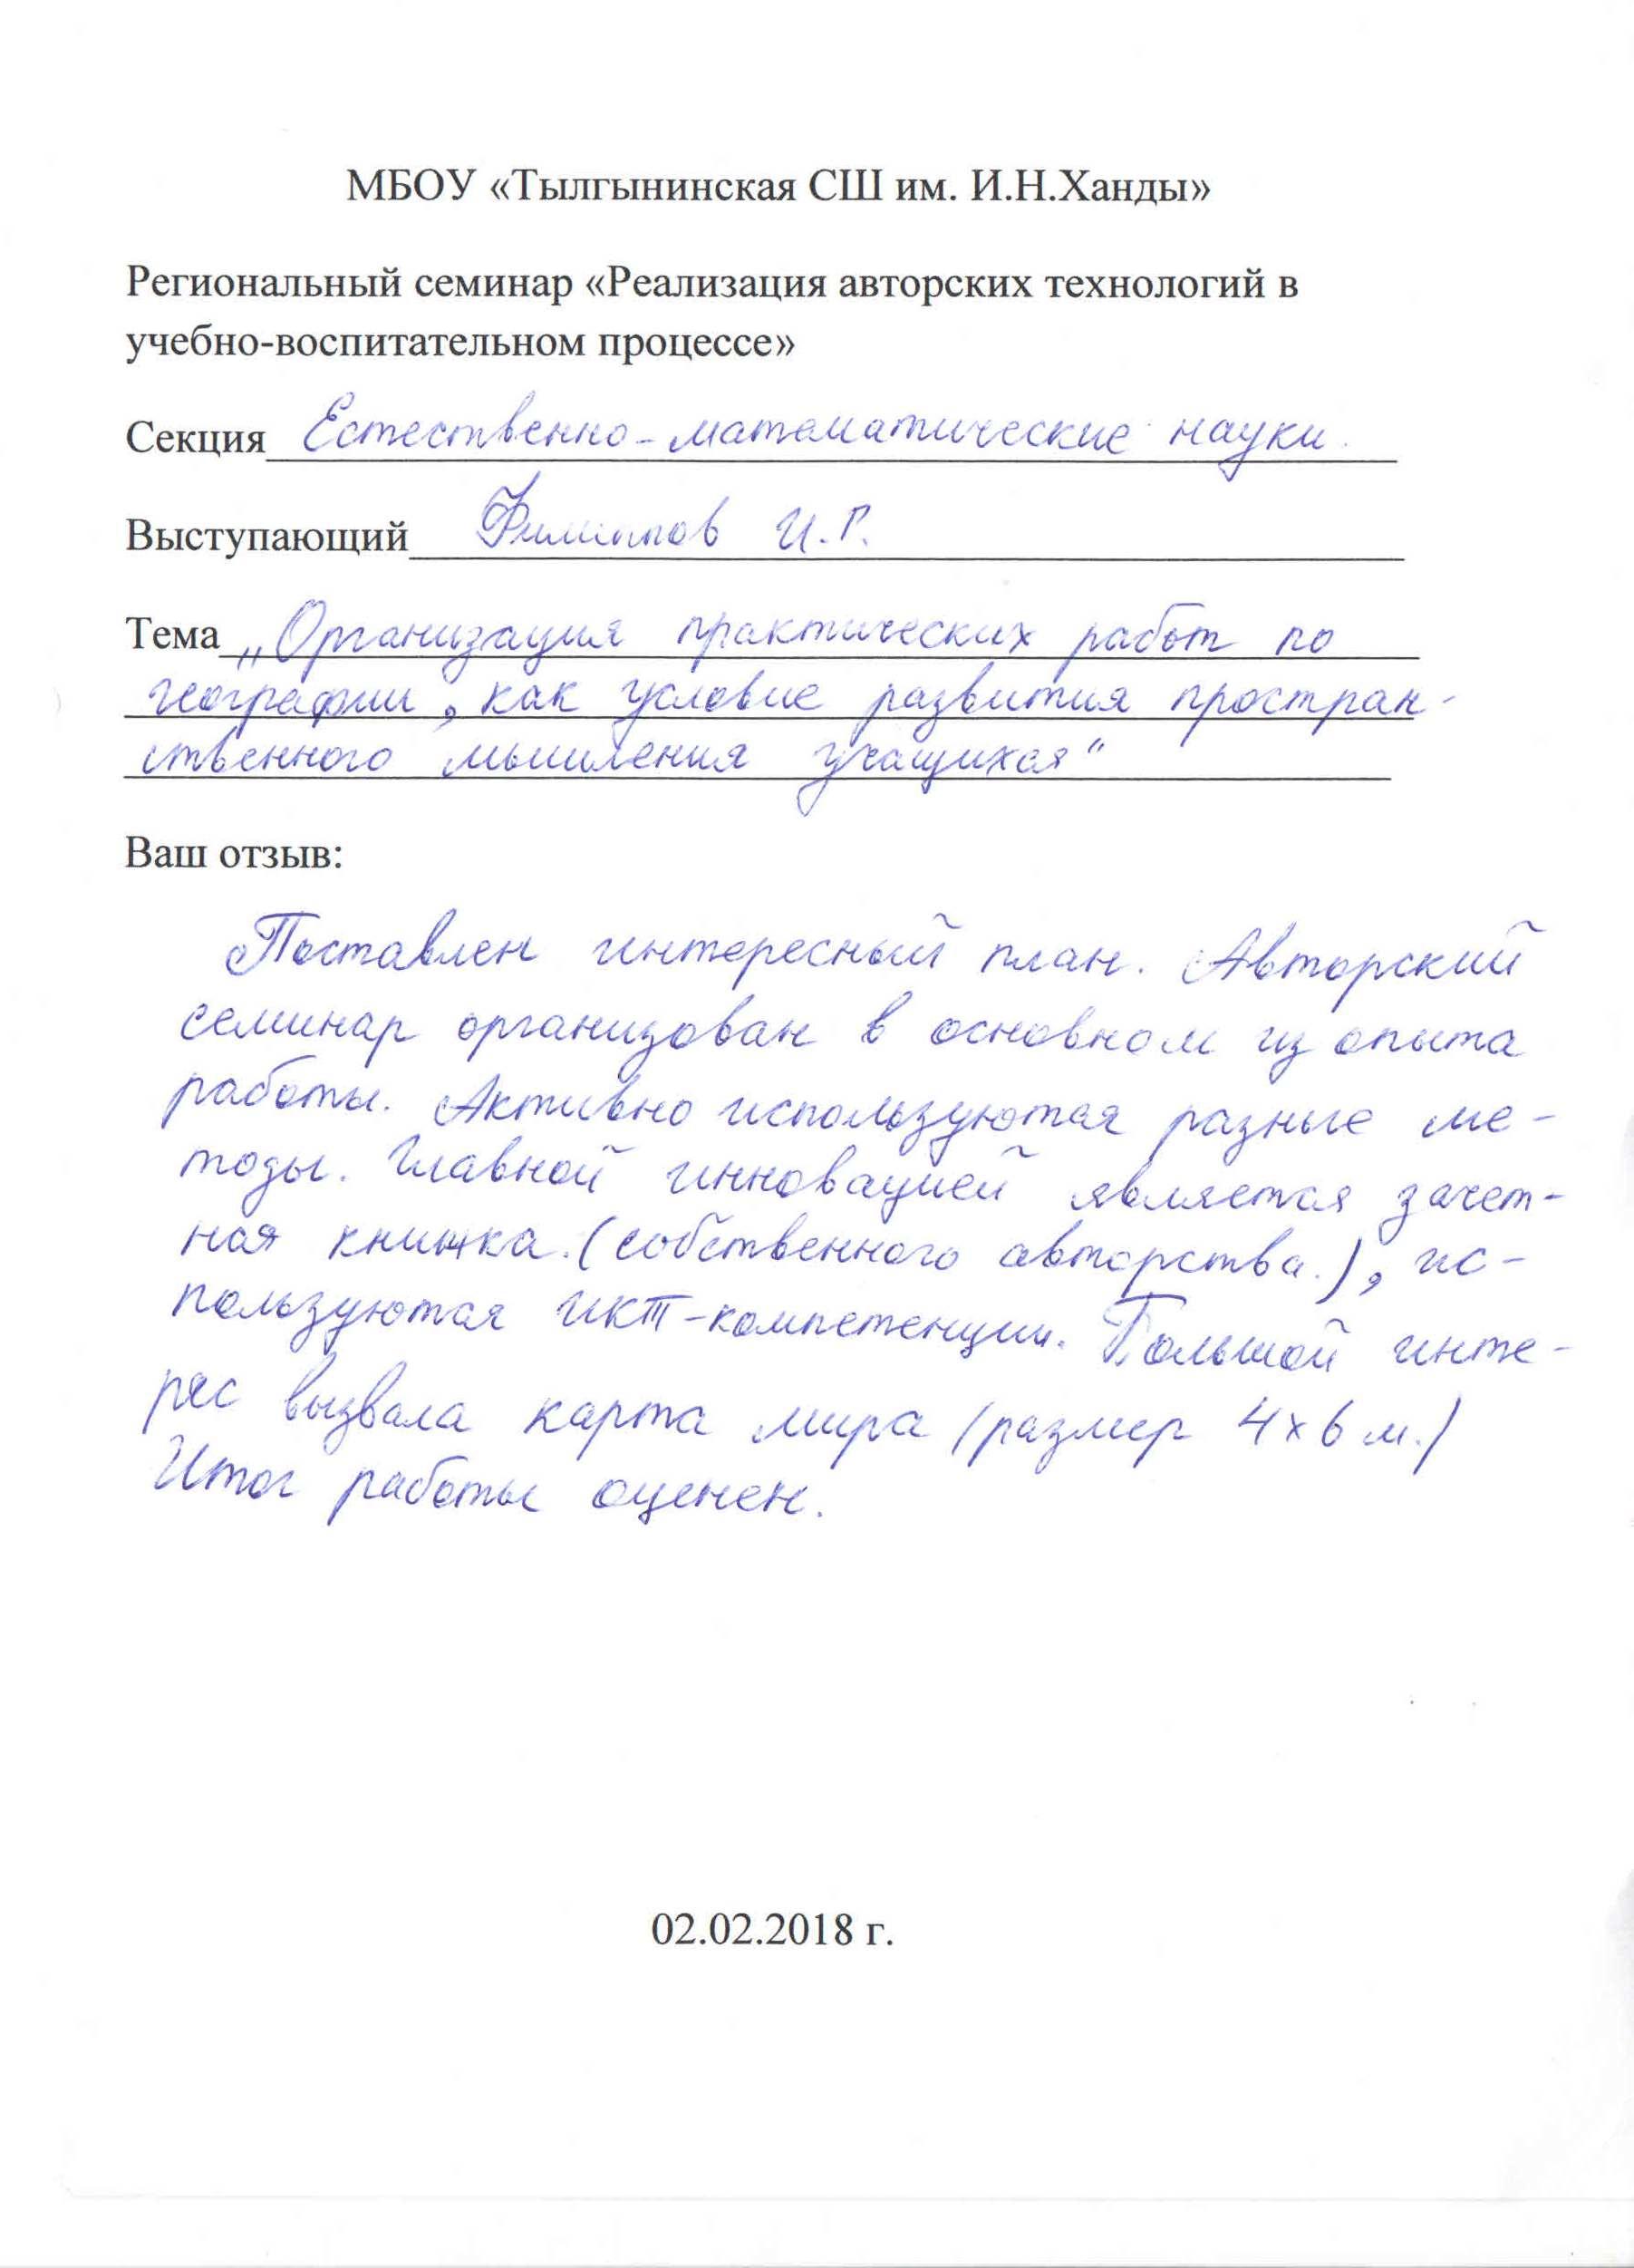 МБОУ «Тылгынинская СШ им. И.Н.Ханды»
Региональный семинар «Реализация авторских технологий в
учебно-воспитательном процессе»
Секция Естественно-математические науки.
Выступающий Филиппов И.Г.
Тема „Организация практических работ по
географии, как условие развития простран-
ственного мышления учащихся"
Ваш отзыв:
Поставлен интересный план. Авторский
семинар организован в основном из опыта
работы. Активно используются разные ме-
тоды. Главной инновацией является зачет-
ная книжка. (собственного авторства.), ис-
пользуются ИКТ-компетенции. Большой инте-
рес вызвала карта мира (размер 4х6 м.)
Итог работы оценен.
02.02.2018 г.